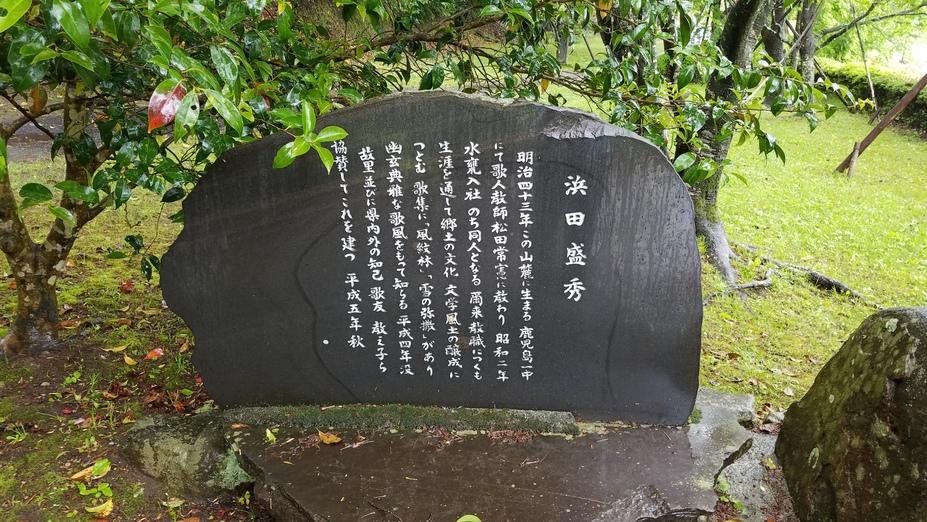 浜田盛秀
明治四十三年この山麓に生まる 鹿児島一中
にて歌人教師松田常憲に教わり 昭和二年
水甕入社 のち同人となる 爾来教職につくも
生涯を通して郷土の文化 文学風土の醸成に
つとむ 歌集に「風紋林」、「雪の弥撒」があり
幽玄典雅な歌風をもって知らる 平成四年没
故里並びに県内外の知己 歌友 教え子ら
協賛してこれを建つ 平成五年秋